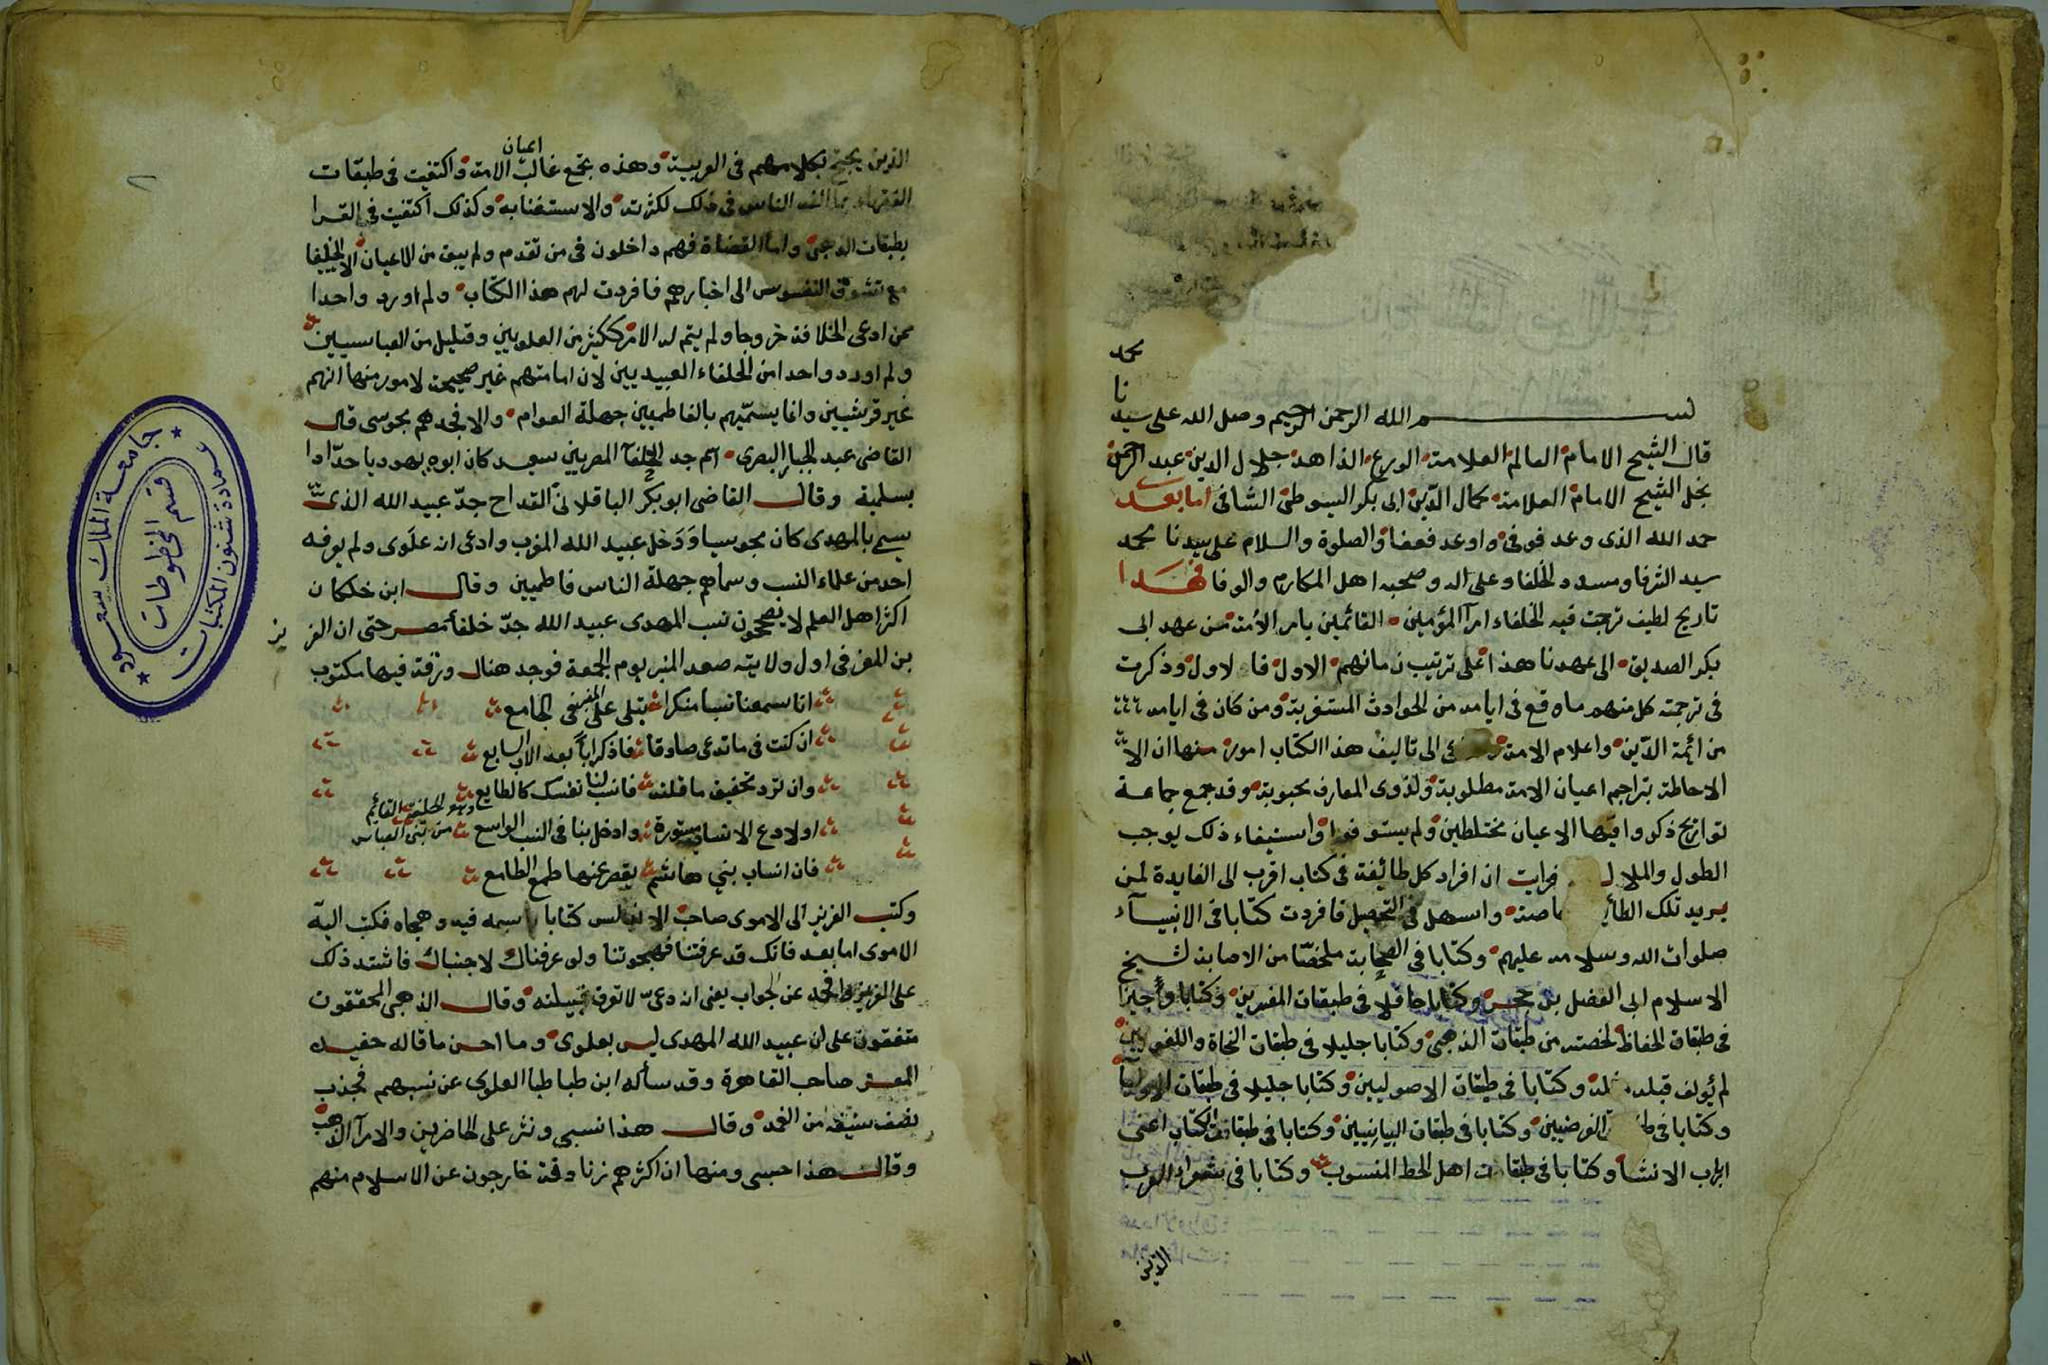 بســـــم الله الرحمن الرحيم وصلى الله على سيدنا محمد
قال الشيخ الامام العالم العلامة الورع الزاهد جلال الدين عبد الرحمن
نجل الشيخ الامام العلامة كمال الدين ابى بكر السيوطى الشافى اما بعد
حمد الله الذى وعد فوفى واوعد فعفا والصلوة والسلام على سيدنا محمد
سيد الشرفا ومسود الخلفا وعلى اله وصحبه اهل المكارم والوفا فهذا
تاريخ لطيف ترجمت فيه الخلفاء امرآ المؤمنين القائمين بامر الامة من عهد ابى
بكر الصديق الى عهدنا هذا على ترتيب زمانهم الاول فالاول وذكرت
فى ترجمة كل منهم ما وقع فى ايامه من الحوادث المستغربة ومن كان فى ايامه
من ائمة الدين واعلام الامة الى تاليف هذا الكتاب امور منها ان
الاحاطة بتراجم اعيان الامة مطلوبة ولذوى المعارف محبوبة وقد جمع جماعة
تواريخ ذكروا فيها الاعيان مختلطين ولم يستوفوا واستيفاء ذلك يوجب
الطول والملال فرايت ان افراد كل طائيفة فى كتاب اقرب الى الفايدة لمن
يريد تلك واسهل فى التحصيل فافردت كتابا فى الانبيآء
صلوات الله وسلامه عليهم وكتابا فى الصحابة ملخصا من الاصابة لشيخ
الاسلام ابى الفضل بن حجر وكتابا حافلا فى طبقات المفسرين وكتابا وجيزا
فى طبقات الحفاظ لخصته من طبقات الذهبى وكتابا جليلا فى طبقات النحاة واللغويين
لم يؤلف قبله مثله وكتابا فى طبقات الاصوليين وكتابا جليلا فى طبقات الاوليآ
وكتابا فى الفرضيين وكتابا فى طبقات البيانيين وكتابا فى طبقات الكتاب اعنى
ارباب الانشا وكتابا فى طبقات اهل الخط المنسوب وكتابا فى شعراء العرب
الذين
الذين يحتج بكلامهم فى العربية وهذه تجمع غالب اعيان الامة واكتفيت فى طبقات
الفقهاء بما الف الناس فى ذلك لكثرته والاستغنا به وكذلك اكتفيت فى القرا
بطبقات الذهبى واما القضاة فهم داخلون فى من تقدم ولم يبق من الاعيان الا الخلفا
مع تشوق النفوس الى اخبارهم فافردت لهم هذا الكتاب ولم اورد واحدا
ممن ادعى الخلافة خروجا ولم يتم له الامر ككثير من العلويين وقليل من العباسيين
ولم اورد واحدا من الخلفاء العبيديين لان امامتهم غير صحيحة لامور منها انهم
غير قرشيين وانما يسميهم بالفاطميين جهلة العوام والا فجدهم مجوسى قال
القاضى عبد الجبار البصرى اسم جد الخلفآ المصريين سعيد كان ابوه يهوديا حدادا
بسلمية وقال القاضى ابو بكر الباقلانى القداح جد عبيد الله الذى
يسمى بالمهدى كان مجوسيا ودخل عبيد الله المغرب وادعى انه علوى ولم يعرفه
احد من علماء النسب وسماهم جهلة الناس فاطميين وقال ابن خلكان
اكثر اهل العلم لا يصححون نسب المهدى عبيد الله جد خلفاء مصر حتى ان العزيز
بن المعز فى اول ولايته صعد المنبر يوم الجمعة فوجد هناك ورقة فيها مكتوب
انا سمعنا نسبا منكرا يتلى على المنبر فى الجامع
ان كنت فى ما تدعى صادقا فاذكر ابا بعد الاب السابع
وان ترد تحقيق ما قلته فانسب لنا نفسك كالطايع
وهو الخليفة القائم من بنى العباس
اولا دع الانساب مستورة وادخل بنا فى النسب الواسع
فان انساب بنى هاشم يقصر عنها طمع الطامع
وكتب العزيز الى الاموى صاحب الاندلس كتابا سبه فيه وهجاه فكتب اليه
الاموى اما بعد فانك قد عرفتنا فهجوتنا ولو عرفناك لاجبناك فاشتد ذلك
على العزيز وافحمه عن الجواب يعنى انه دعى لا تعرف قبيلته وقال الذهبى المحققون
متفقون على ان عبيد الله المهدى ليس بعلوى وما احسن ما قاله حفيده
المعز صاحب القاهرة وقد ساله ابن طباطبا العلوى عن نسبهم فجذب
نصف سيفه من الغمد وقال هذا نسبى ونثر على الحاضرين والامرآ الذهب
وقال هذا حسبى ومنها ان اكثرهم زنادقة خارجون عن الاسلام منهم
جامعة الملك سعود
عمادة شئون المكتبات
قسم المخطوطات